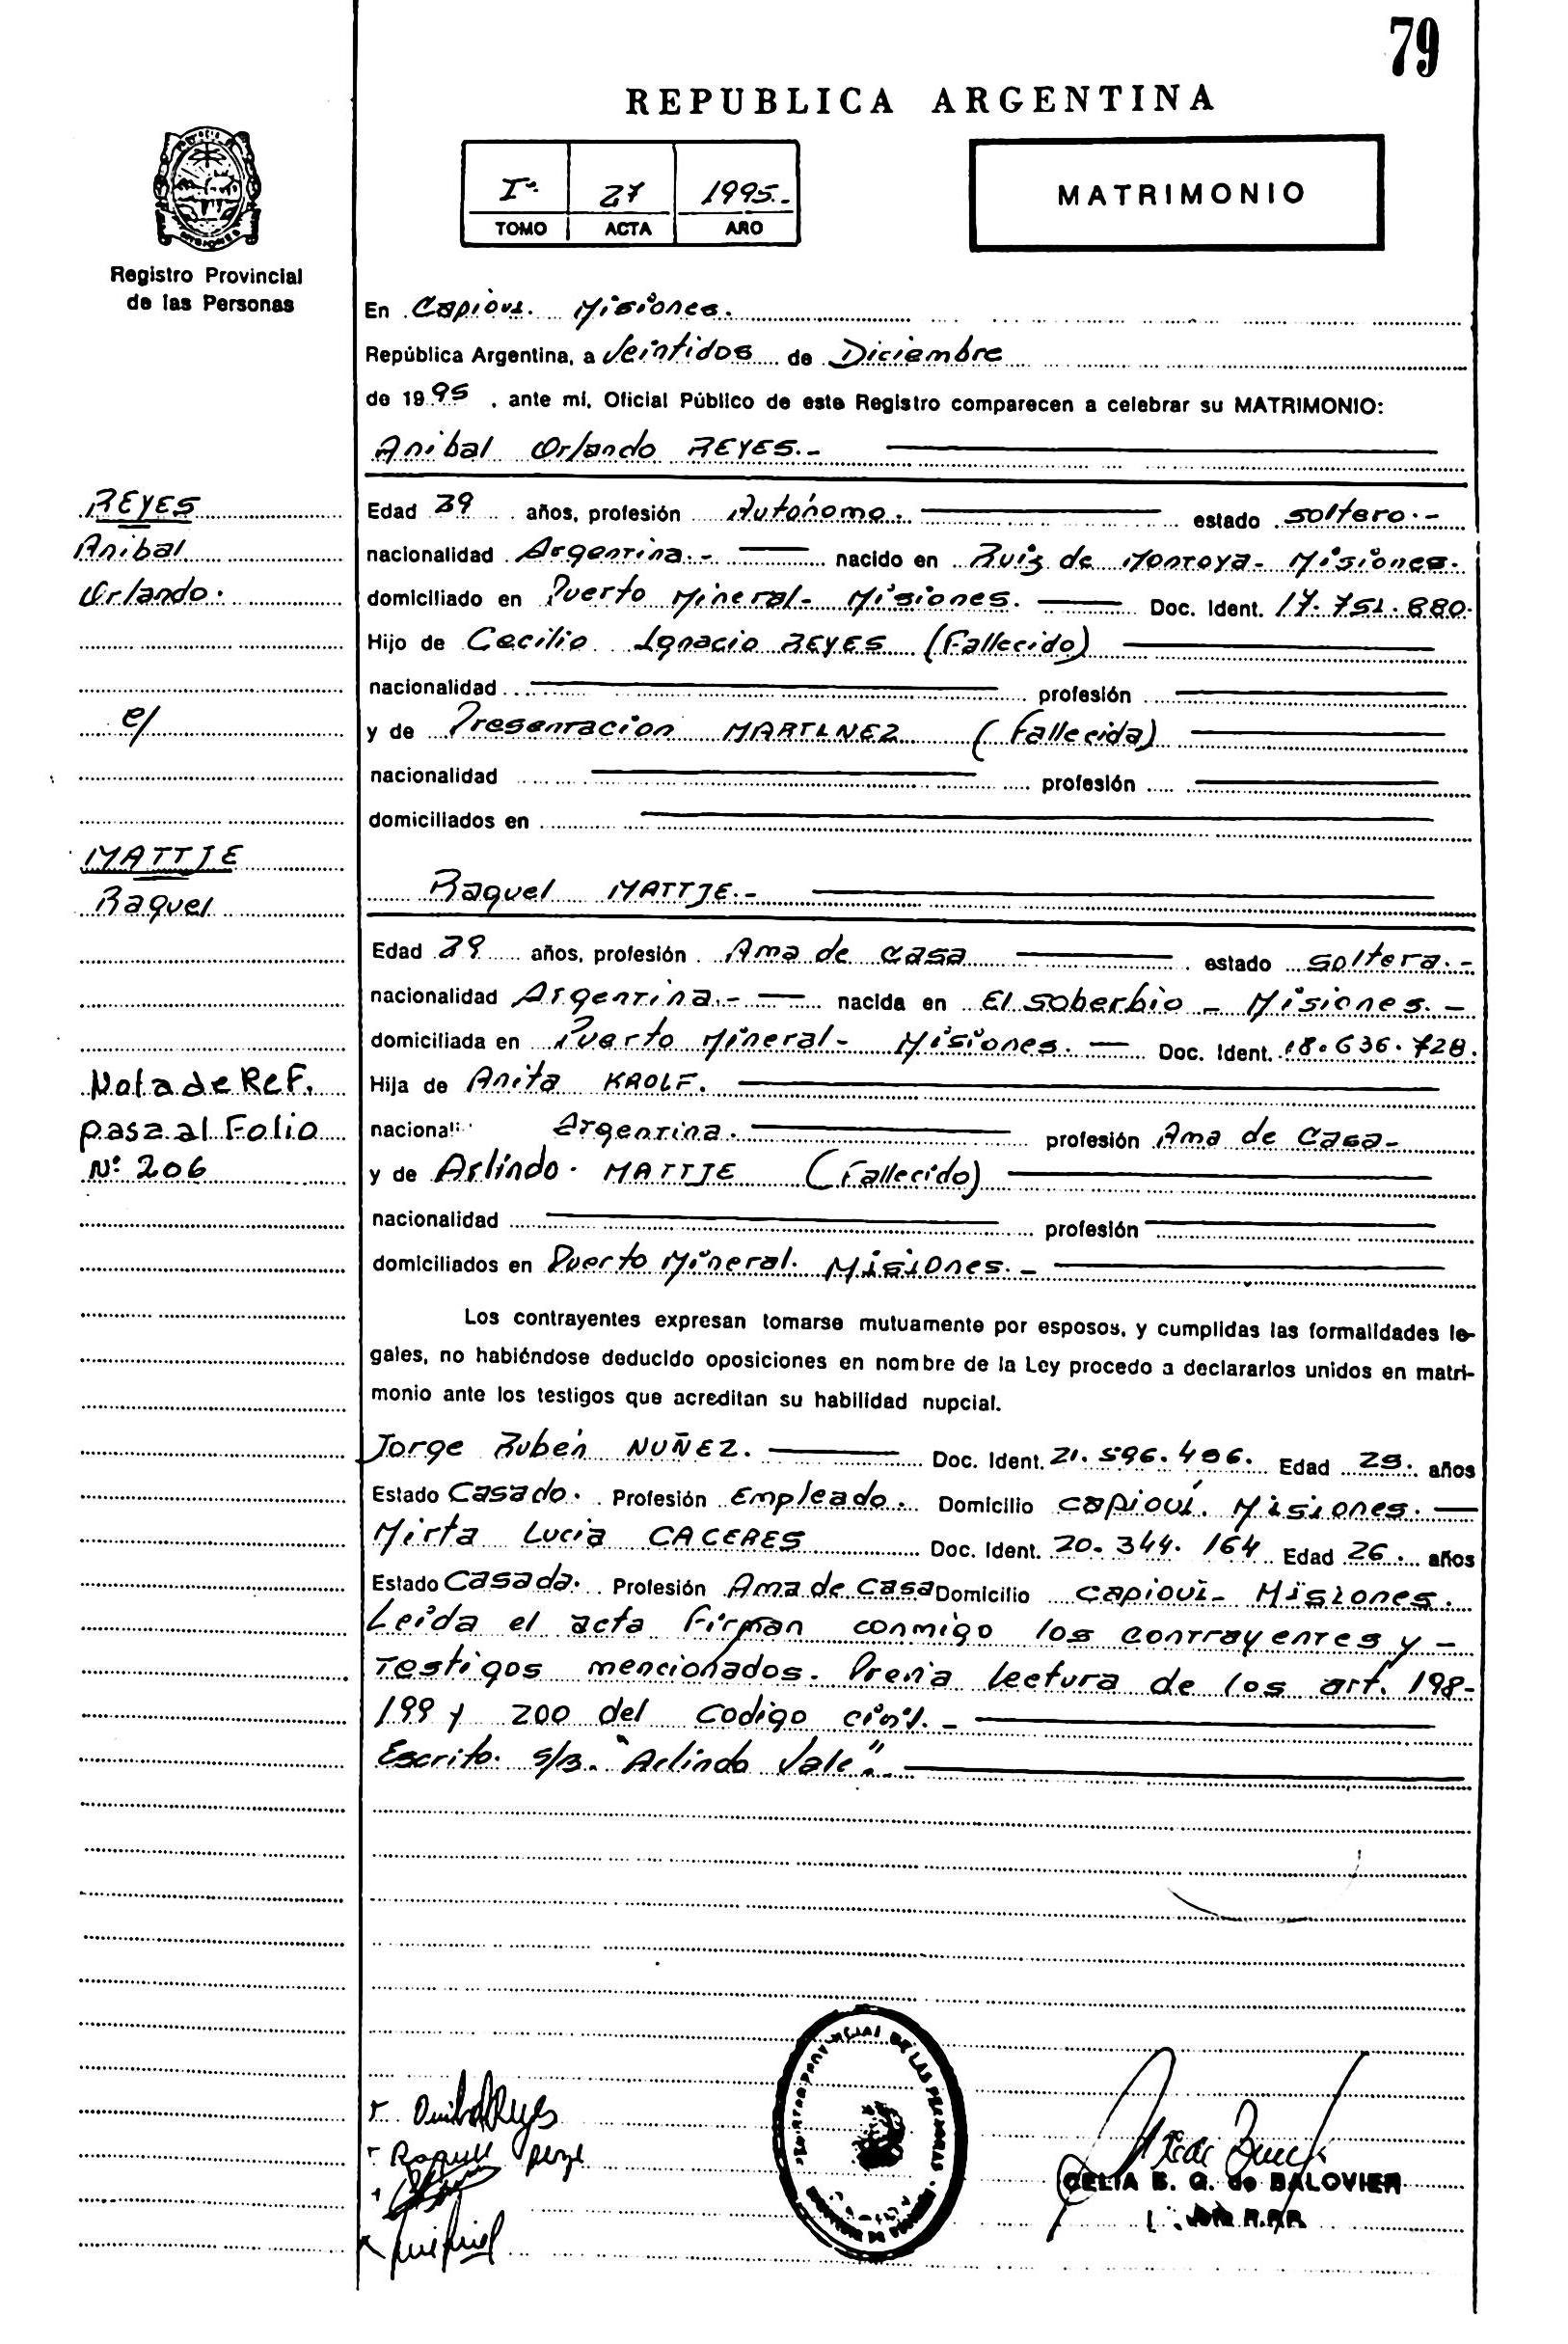 79
REPUBLICA ARGENTINA
Iº. 27 1995.-
TOMO ACTA AÑO
MATRIMONIO
Registro Provincial
de las Personas
En Capioví. Misiones.
República Argentina, a Veintidos de Diciembre
de 1995, ante mí, Oficial Público de este Registro comparecen a celebrar su MATRIMONIO:
Anibal Orlando REYES.-
REYES
Anibal
Orlando.
e/
MATTJE
Raquel
Nota de Ref.
pasa al Folio
Nº 206
Edad 39 años, profesión Autónomo. estado soltero.-
nacionalidad Argentina.- nacido en Ruiz de Montoya- Misiones.
domiciliado en Puerto Mineral- Misiones. Doc. Ident. 17.751.880.
Hijo de Cecilio Ignacio REYES (Fallecido)
nacionalidad profesión
y de Presentacion MARTINEZ (Fallecida)
nacionalidad profesión
domiciliados en
Raquel MATTJE.-
Edad 39 años, profesión Ama de casa estado soltera.-
nacionalidad Argentina.- nacida en El Soberbio - Misiones.-
domiciliada en Puerto Mineral- Misiones. Doc. Ident. 18.636.728.
Hija de Anita KROLF.
nacionali Argentina. profesión Ama de Casa-
y de Arlindo. MATTJE (Fallecido)
nacionalidad profesión
domiciliados en Puerto Mineral. Misiones.-
Los contrayentes expresan tomarse mutuamente por esposos, y cumplidas las formalidades le-
gales, no habiéndose deducido oposiciones en nombre de la Ley procedo a declararlos unidos en matri-
monio ante los testigos que acreditan su habilidad nupcial.
Jorge Rubén NUÑEZ. Doc. Ident. 21.596.406. Edad 25. años
Estado Casado. Profesión Empleado. Domicilio Capioví. Misiones.
Mirta Lucia CACERES Doc. Ident. 20.344.164 Edad 26. años
Estado Casada. Profesión Ama de Casa Domicilio Capioví- Misiones.
Leída el acta firman conmigo los contrayentes y -
testigos mencionados. Previa lectura de los art. 198-
199 y 200 del Codigo civil.-
Escrito. S/B. "Arlindo Vale".
Anibal Reyes
Raquel
CELIA B. G. de BALOVIER